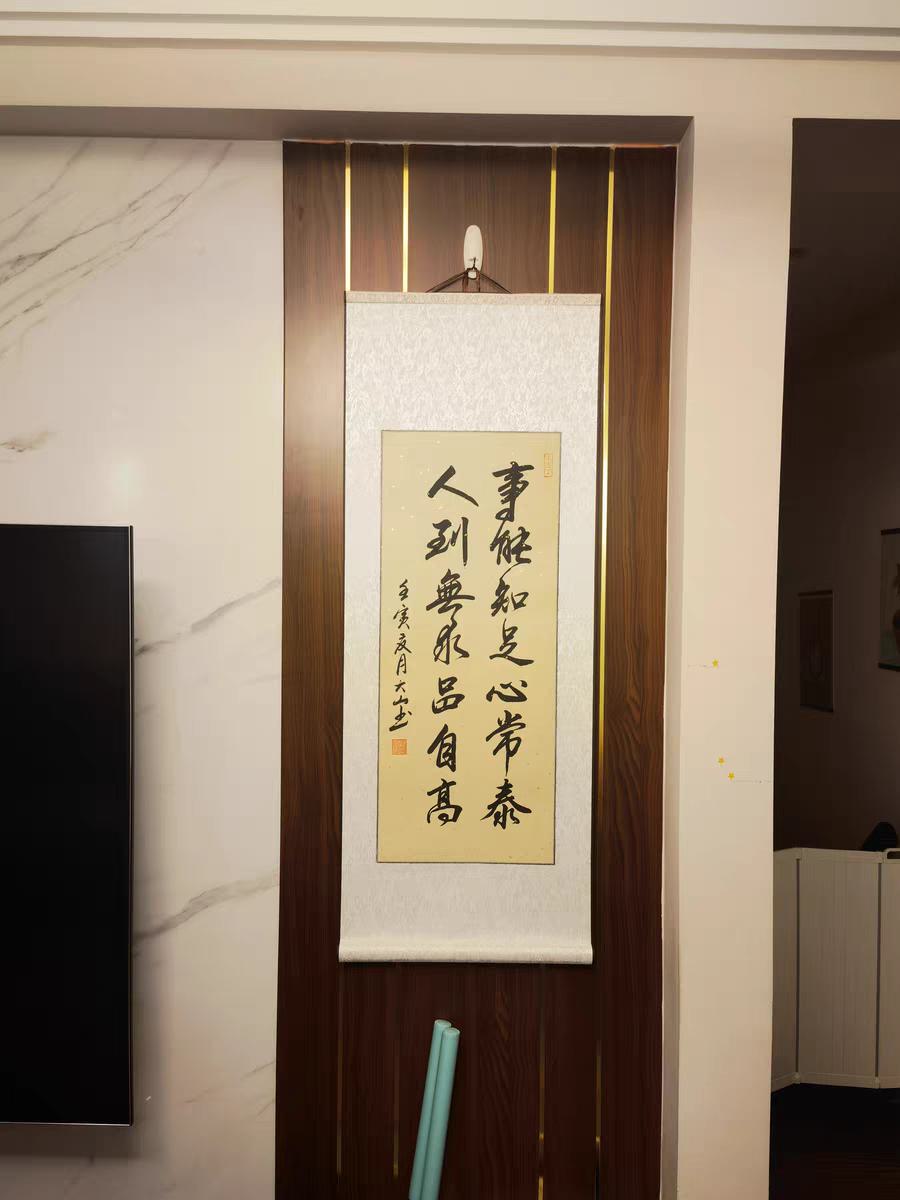 事能知足心常泰
人到無求品自高
壬寅夏月大山书